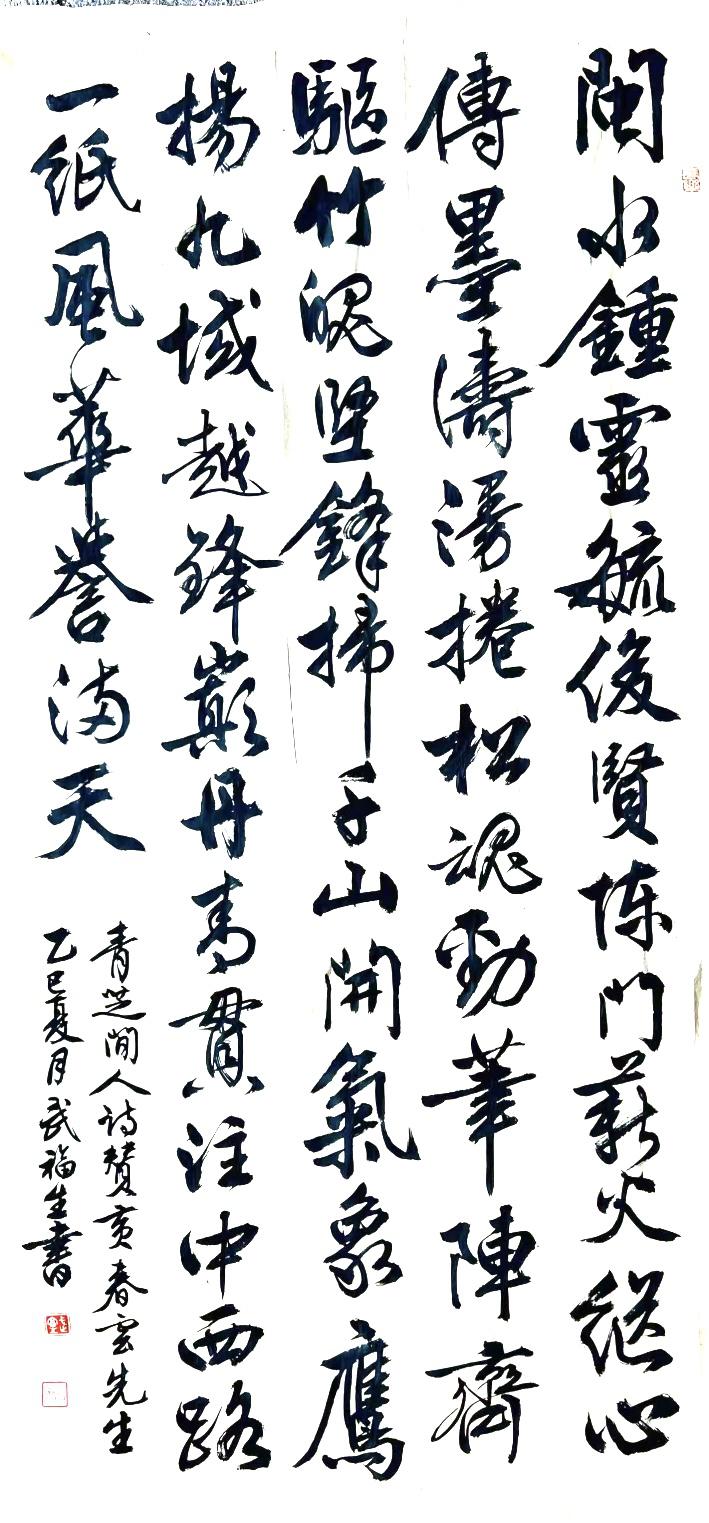 閩水鍾靈毓俊賢陳門薪火繼心
傳墨濤湯捲松魂勁筆陣齊
驅竹魄堅鋒掃千山開氣象鷹
揚九域越鋒巔丹青貫注中西路
一紙風華譽滿天
青芝閒人詩贊黃春雲先生
乙巳夏月武福生書